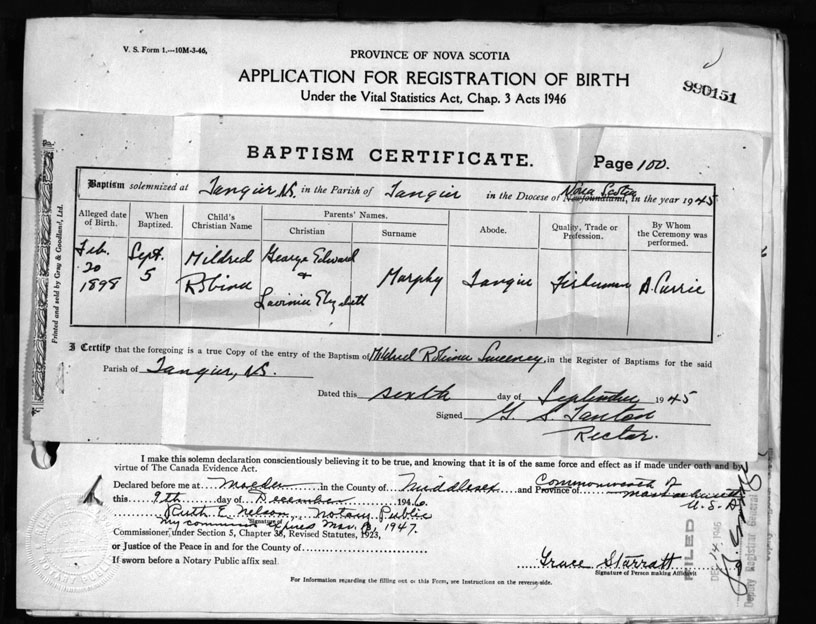 V. S. Form 1.—10M-3-46.
PROVINCE OF NOVA SCOTIA
APPLICATION FOR REGISTRATION OF BIRTH
Under the Vital Statistics Act, Chap. 3 Acts 1946
990151
BAPTISM CERTIFICATE.
Page 100.
Baptism solemnized at Tangier NS. in the Parish of Tangier in the Diocese of Newfoundland, Nova Scotia in the year 1945
Alleged date of Birth.
When Baptized.
Child's Christian Name
Parents' Names.
Christian
Surname
Abode.
Quality, Trade or Profession.
By Whom the Ceremony was performed.
Feb. 20 1898
Sept. 5
Mildred Robina
George Edward & Lavinia Elizabeth
Murphy
Tangier
Fisherman
A. Currie
I Certify that the foregoing is a true Copy of the entry of the Baptism of Mildred Robina Sweeney, in the Register of Baptisms for the said
Parish of Tangier, NS.
Dated this sixth day of September 1945
Signed G. S. Tanton
Rector.
Printed and sold by Gray & Goodland, Ltd.
I make this solemn declaration conscientiously believing it to be true, and knowing that it is of the same force and effect as if made under oath and by
virtue of The Canada Evidence Act.
Declared before me at Malden in the County of Middlesex and Province of Commonwealth of Massachusetts U.S.A.
this 9th day of December 1946
Ruth E. Nelson, Notary Public
Signature of
My commission expires Mar. 1947.
Commissioner under Section 5, Chapter 38, Revised Statutes, 1923,
or Justice of the Peace in and for the County of
If sworn before a Notary Public affix seal.
Grace Starratt
Signature of Person making Affidavit
For Information regarding the filling out of this Form, see Instructions on the reverse side.
FILED
DEC 14 1946
Deputy Registrar General